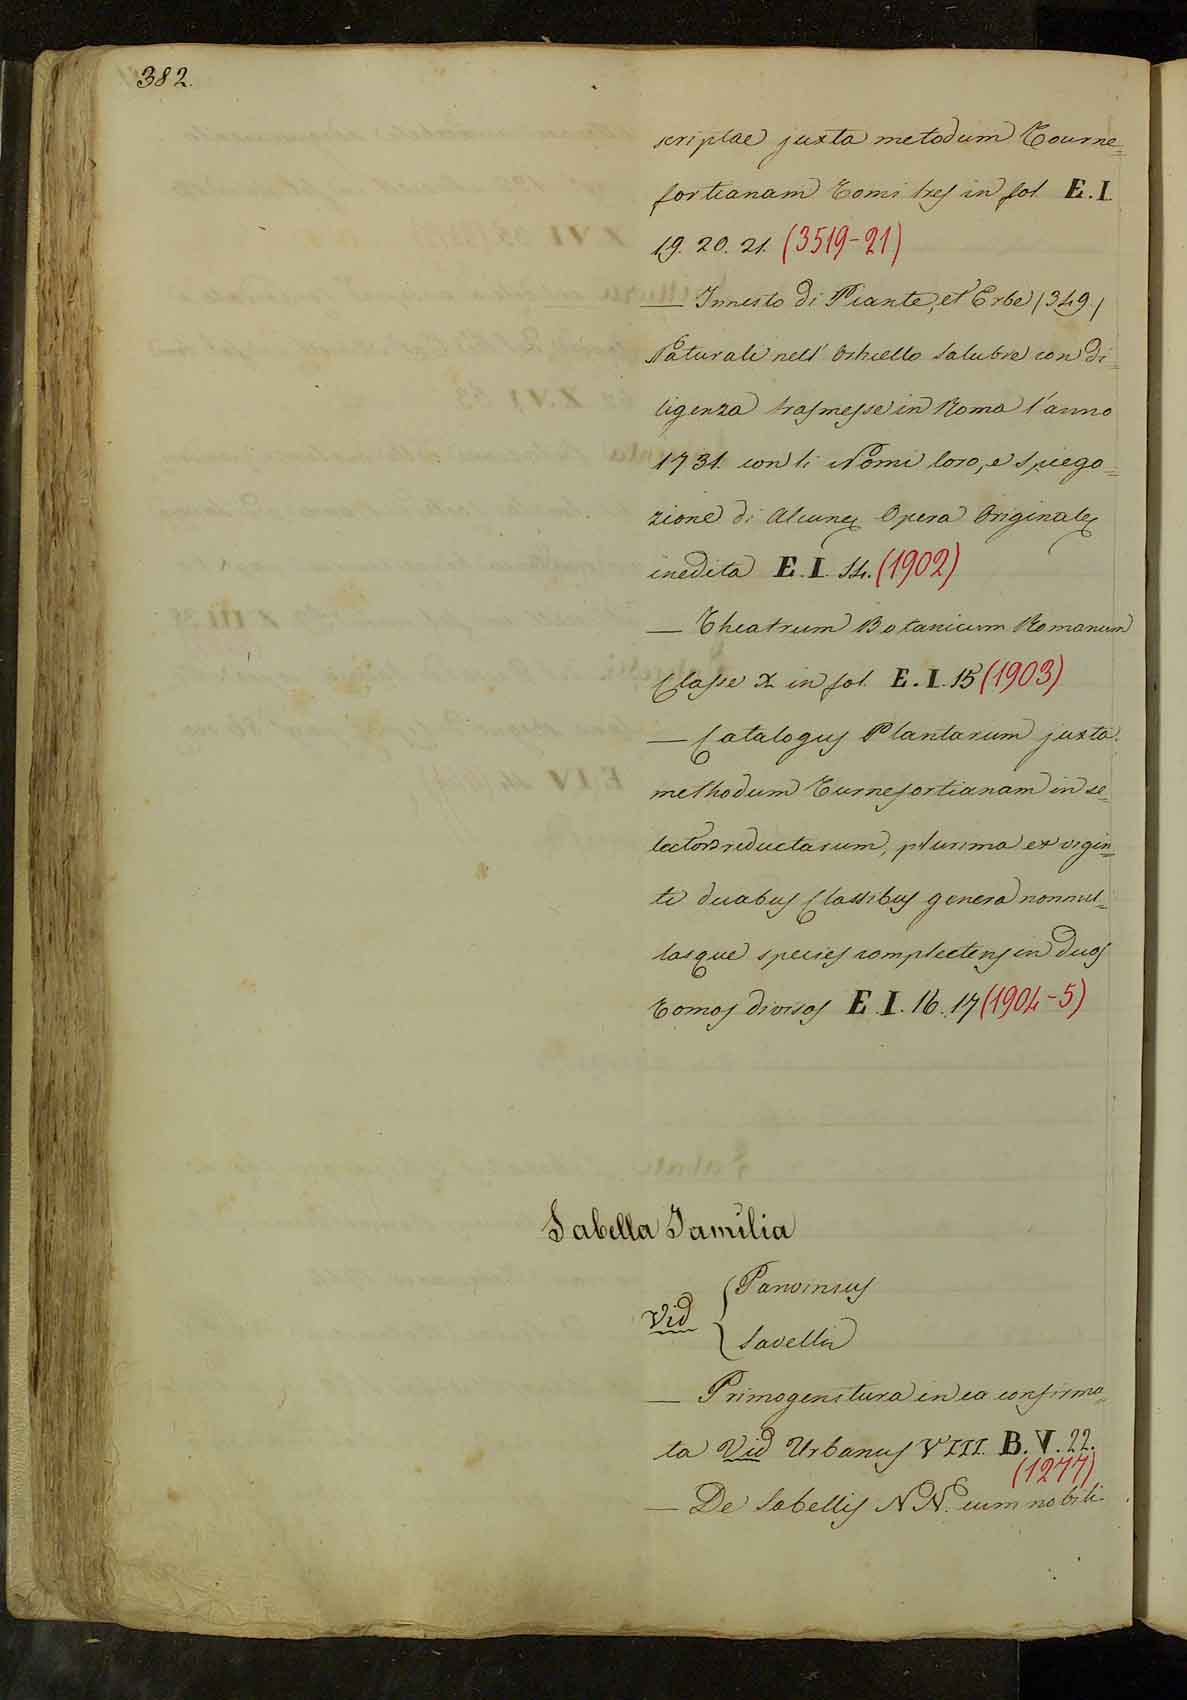 382.
scriptae juxta metodum Tourne=
fortianam Tomi tres in fol. E.I.
19. 20. 21. (3519-21)
— Innesto di Piante, et Erbe (349)
Naturali nell' Orticello Salubre con di=
ligenza trasmesse in Roma l'anno
1731. con li Nomi loro, e spiega=
zione di Alcune, Opera Originale,
inedita E.I. 14. (1902)
— Theatrum Botanicum Romanum
Classe X in fol. E.I.15 (1903)
— Catalogus Plantarum juxta
methodum Turnefortianam in se=
lectos reductarum, plurima ex vigin=
ti duabus Classibus genera nonnul=
lasque species complectens in duos
Tomos divisos E.I.16.17 (1904-5)
Sabella Familia
Vid { Panvinius
Savelli
— Primogenitura in ea confirma=
ta Vid Urbanus VIII. B.V.22.
(1277)
— De Sabellis N N. cum nobili